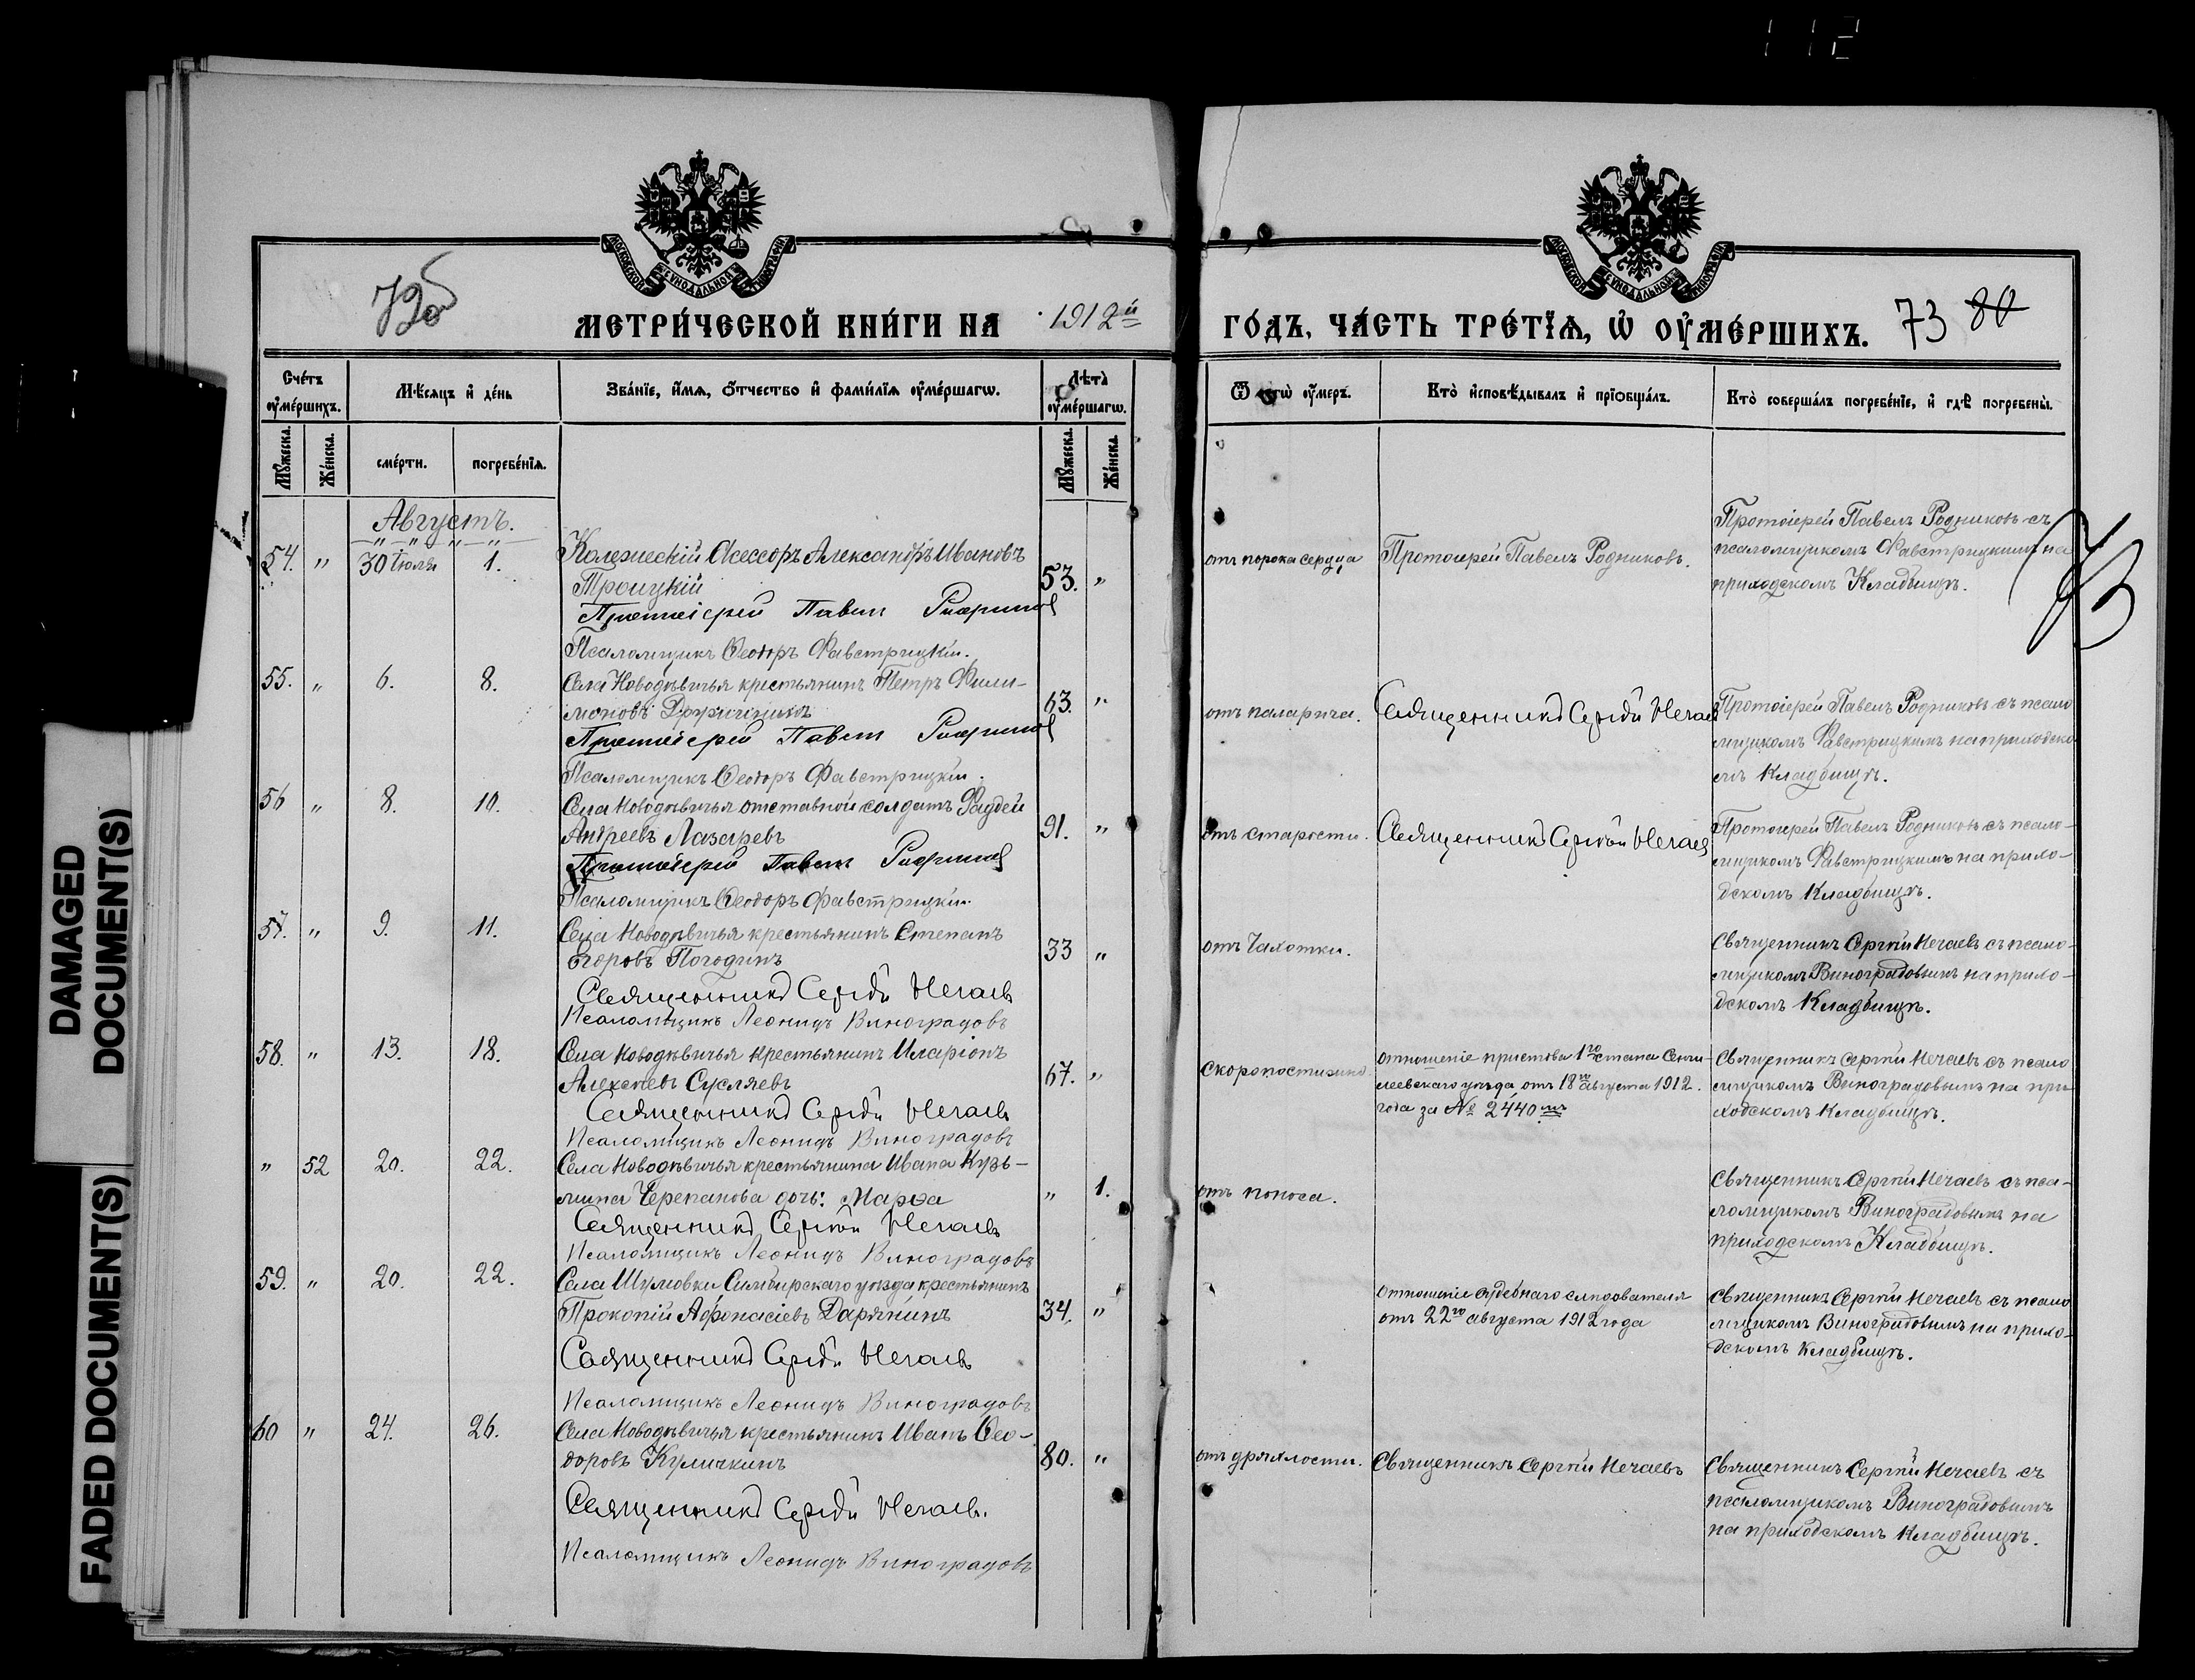 112
DAMAGED
DOCUMENT(S)
FADED DOCUMENT(S)
МОСКОВСКОЙ СѴНОДАЛЬНОЙ ТИПОГРАФІИ
МОСКОВСКОЙ СѴНОДАЛЬНОЙ ТИПОГРАФІИ
72об
МЕТРИ́ЧЕСКОЙ КНИ́ГИ НА 1912й ГО́ДЪ, ЧА́СТЬ ТРЕ́ТІѦ, Ѡ ОУ҆МЕ́РШИХЪ. 73 80
Сче́тъ оу҆ме́ршихъ.
Мѣ́сяцъ и҆ де́нь
Зва́ніе, и҆́мѧ, ѻ҆́тчество и҆ фами́лїѧ оу҆ме́ршагѡ.
Лѣ́та оу҆ме́ршагѡ.
Ѿ чегѡ̀ оу҆́меръ.
Кто̀ и҆сповѣ́дывалъ и҆ прїѻбща́лъ.
Кто̀ соверша́лъ погребе́нїе, и҆ гдѣ̀ погребены̀.
Мꙋ́жеска. Же́нска. сме́рти. погребе́нїѧ. Мꙋ́жеска. Же́нска.
Августъ.
54. " 30 Іюля 1. Коллежскій Асессоръ Александръ Ивановъ
Троицкій 53. "
Протоіерей Павелъ Родниковъ
Псаломщикъ Ѳеодоръ Фавстрицкій.
отъ порока сердца
Протоіерей Павелъ Родниковъ.
Протоіерей Павелъ Родниковъ съ
псаломщикомъ Фавстрицкимъ на
приходскомъ Кладбищѣ.
73
55. " 6. 8. Села Новодѣвичья крестьянинъ Петръ Фили-
моновъ 63. "
Протоіерей Павелъ Родниковъ
Псаломщикъ Ѳеодоръ Фавстрицкій.
отъ паралича.
Священникъ Сергій Нечаевъ
Протоіерей Павелъ Родниковъ съ псало
мщикомъ Фавстрицкимъ на приходско
мъ Кладбищѣ.
56 " 8. 10. Села Новодѣвичья отставной солдатъ Фаддей
Андреевъ Лазаревъ 91. "
Протоіерей Павелъ Родниковъ
Псаломщикъ Ѳеодоръ Фавстрицкій.
отъ старости.
Священникъ Сергій Нечаевъ
Протоіерей Павелъ Родниковъ съ псало-
мщикомъ Фавстрицкимъ на прихо-
дскомъ Кладбищѣ.
57. " 9. 11. Села Новодѣвичья крестьянинъ Степанъ
Егоровъ Погодинъ 33 "
Священникъ Сергій Нечаевъ
Псаломщикъ Леонидъ Виноградовъ
отъ Чахотки.
Священникъ Сергій Нечаевъ съ псало-
мщикомъ Виноградовымъ на прихо-
дскомъ Кладбищѣ.
58. " 13. 18. Села Новодѣвичья крестьянинъ Иларіонъ
Алексѣевъ Сусляевъ 67. "
Священникъ Сергій Нечаевъ
Псаломщикъ Леонидъ Виноградовъ
скоропостижно
отношеніе пристава 1го стана Сенги-
леевскаго уѣзда отъ 18го августа 1912.
года за № 2440мъ
Священникъ Сергій Нечаевъ съ псало
мщикомъ Виноградовымъ на при
ходскомъ кладбищѣ.
" 52 20. 22. Села Новодѣвичья крестьянина Ивана Кузь-
мина Черепанова дочь: Марѳа " 1.
Священникъ Сергій Нечаевъ
Псаломщикъ Леонидъ Виноградовъ
отъ поноса.
Священникъ Сергій Нечаевъ съ пса-
ломщикомъ Виноградовымъ на
приходскомъ Кладбищѣ.
59. " 20. 22. Села Шумовки Симбирскаго уѣзда крестьянинъ
Прокопій Афонасіевъ Дарянинъ 34. "
Священникъ Сергій Нечаевъ
Псаломщикъ Леонидъ Виноградовъ
Отношеніе судебнаго слѣдователя
отъ 22го августа 1912 года
Священникъ Сергій Нечаевъ съ псало
мщикомъ Виноградовымъ на прихо-
дскомъ кладбищѣ.
60 " 24. 26. Села Новодѣвичья крестьянинъ Иванъ Ѳео-
доровъ Куличкинъ 80. "
Священникъ Сергій Нечаевъ.
Псаломщикъ Леонидъ Виноградовъ
отъ дряхлости.
Священникъ Сергій Нечаевъ
Священникъ Сергій Нечаевъ съ
псаломщикомъ Виноградовымъ
на приходскомъ кладбищѣ.